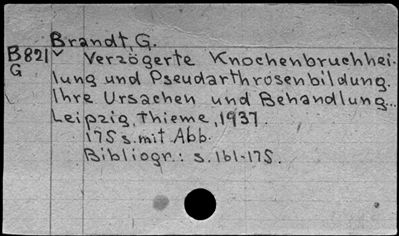 Brandt, G.
B821 Verzögerte Knochenbruchhei-
G lung und Pseudarthrosenbildung.
Ihre Ursachen und Behandlung...
Leipzig, Thieme, 1937.
175 s. mit Abb.
Bibliogr.: s. 161-175.